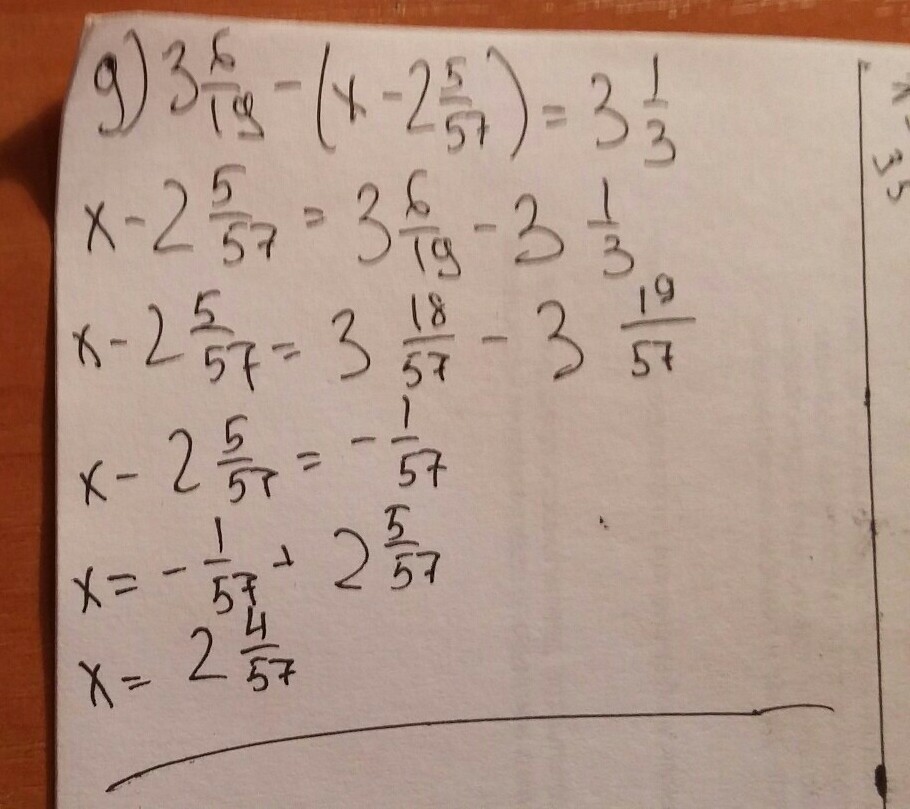 g) 3 6/19 - (x - 2 5/57) = 3 1/3
x - 2 5/57 = 3 6/19 - 3 1/3
x - 2 5/57 = 3 18/57 - 3 19/57
x - 2 5/57 = - 1/57
x = - 1/57 + 2 5/57
x = 2 4/57
35